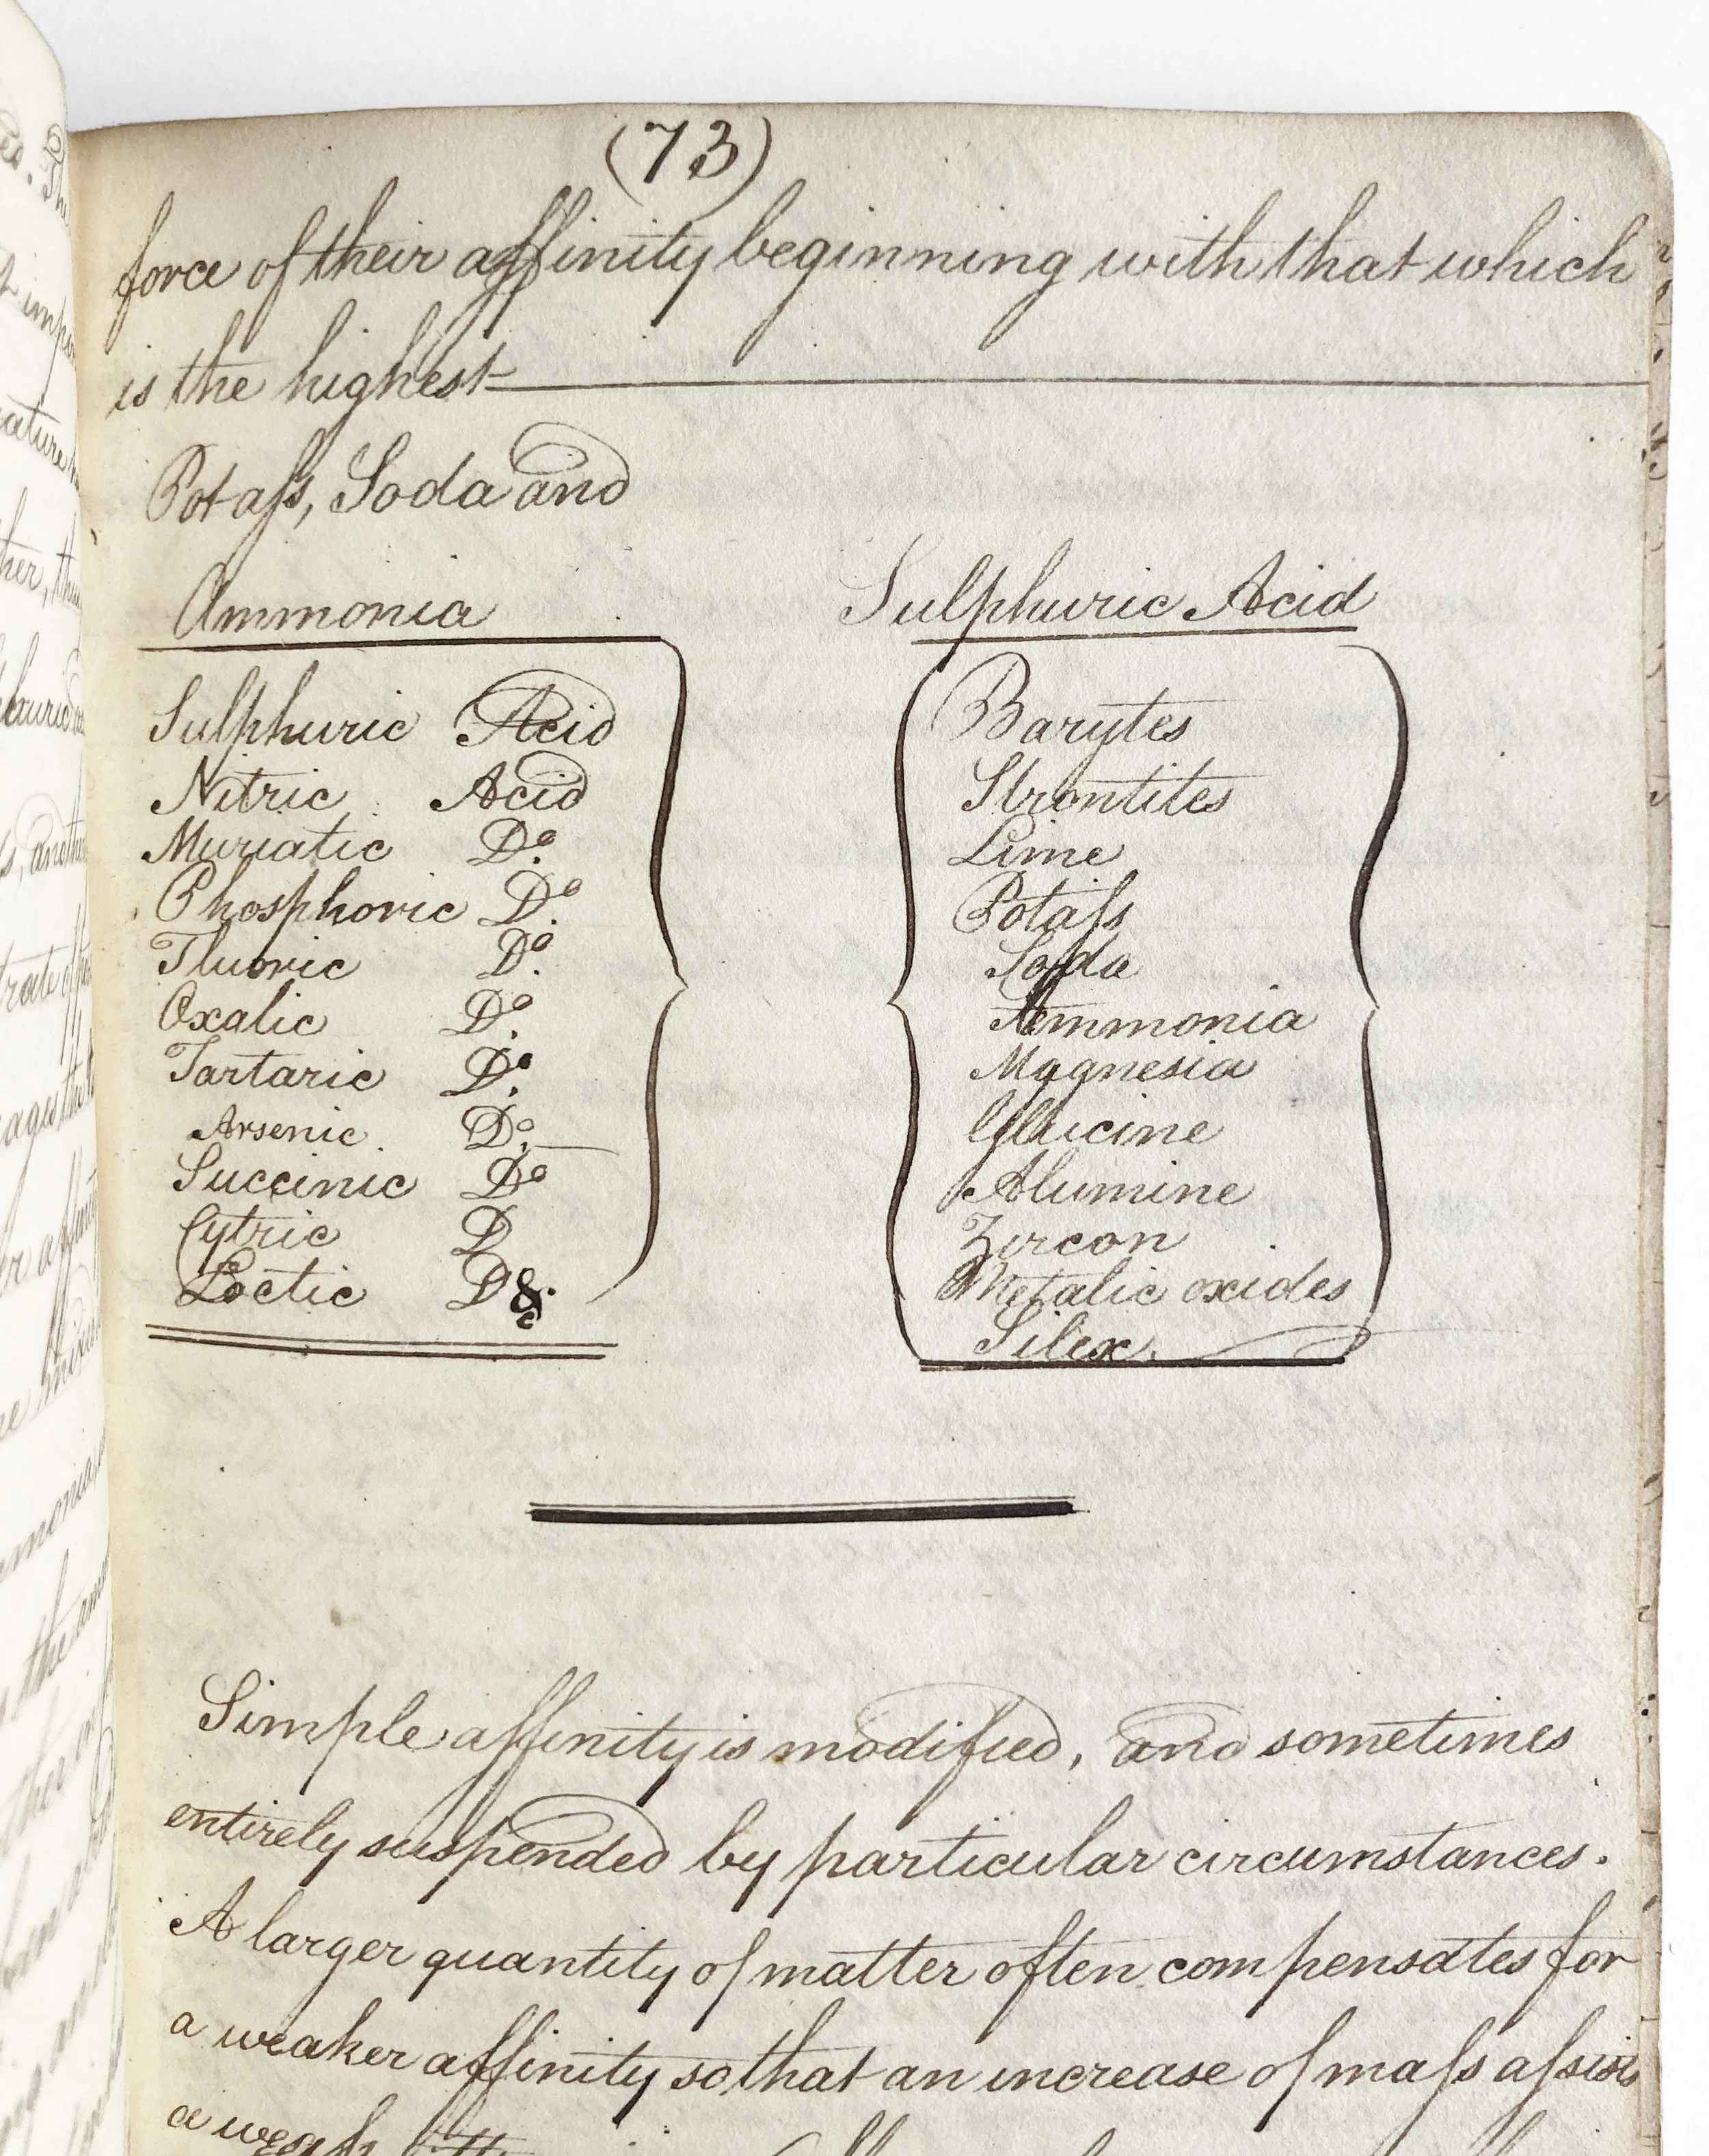 (73)
force of their affinity beginning with that which
is the highest
Potaſs, Soda and
Ammonia
Sulphuric Acid
Nitric Acid
Muriatic Do.
Phosphoric Do.
Fluoric Do.
Oxalic Do.
Tartaric Do.
Arsenic Do.
Succinic Do
Cytric D
Loctic D &c
Sulphuric Acid
Barytes
Strontites
Lime
Potaſs
Soda
Ammonia
Magnesia
Glucine
Alumine
Zircon
Metalic oxides
Silex.
Simple affinity is modified, and sometimes
entirely suspended by particular circumstances.
A larger quantity of matter often compensates for
a weaker affinity so that an increase of maſs aſsists
a weak